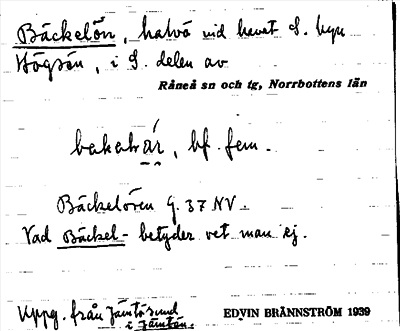 Bäckelön, halvö vid havet S. byn
Högsön, i S. delen av
Råneå sn och tg, Norrbottens län
bf. fem.
Bäckelören G. 37 NV.
Vad Bäckel- betyder vet man ej.
Uppg. från
i
EDVIN BRÄNNSTRÖM 1939